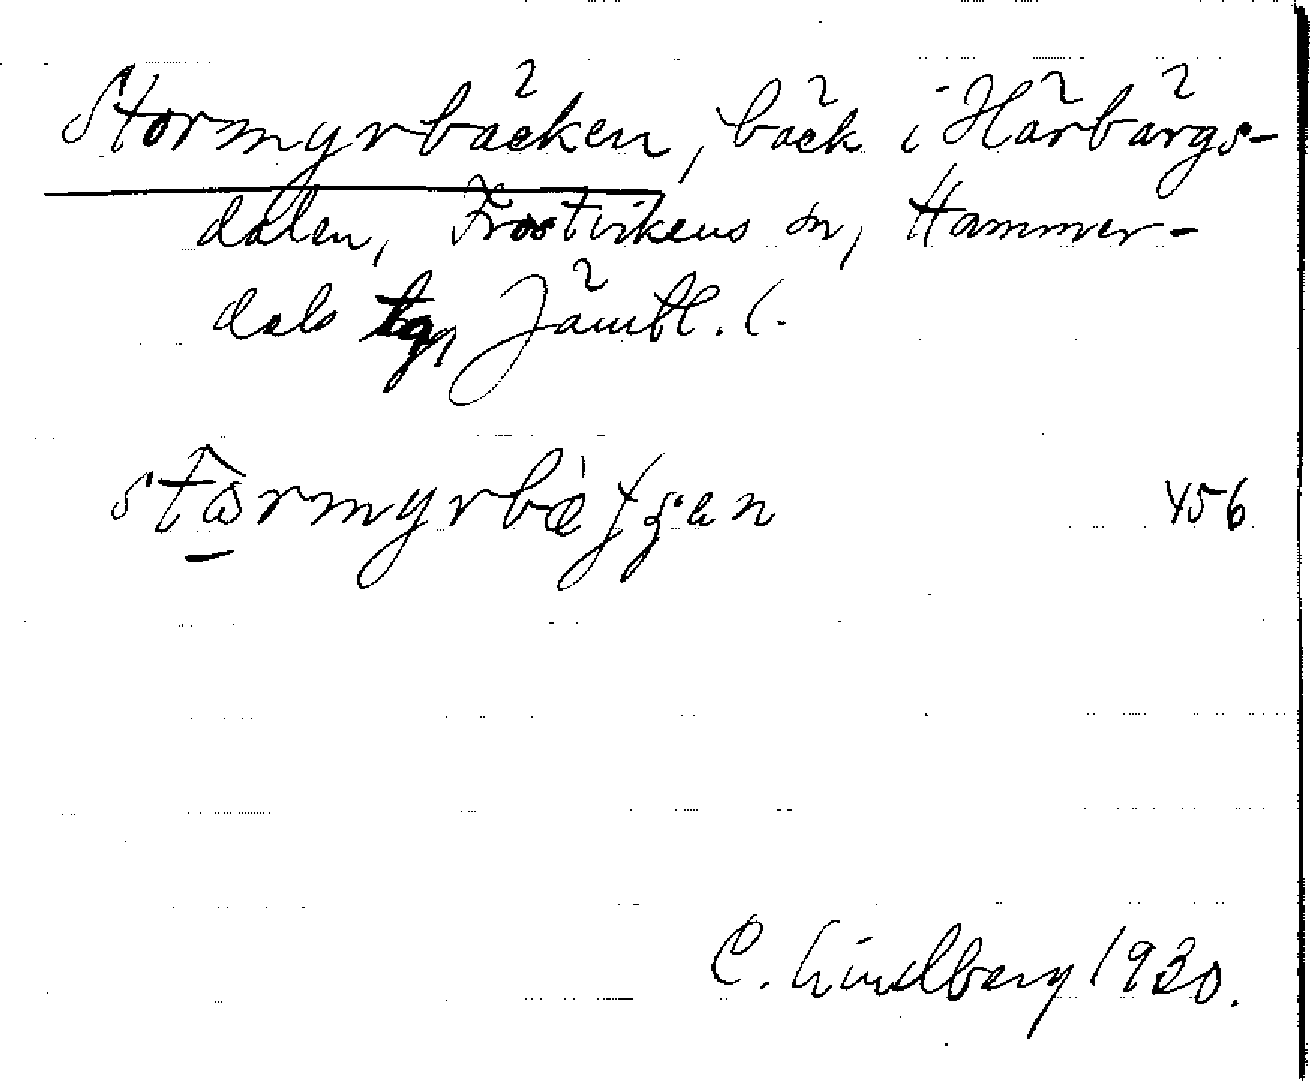 Stormyrbäcken, bäck i Härbärgs-
dalen, Frostvikens sn, Hammer-
dals tg, Jämtl. l.
456
C. Lindberg 1930.